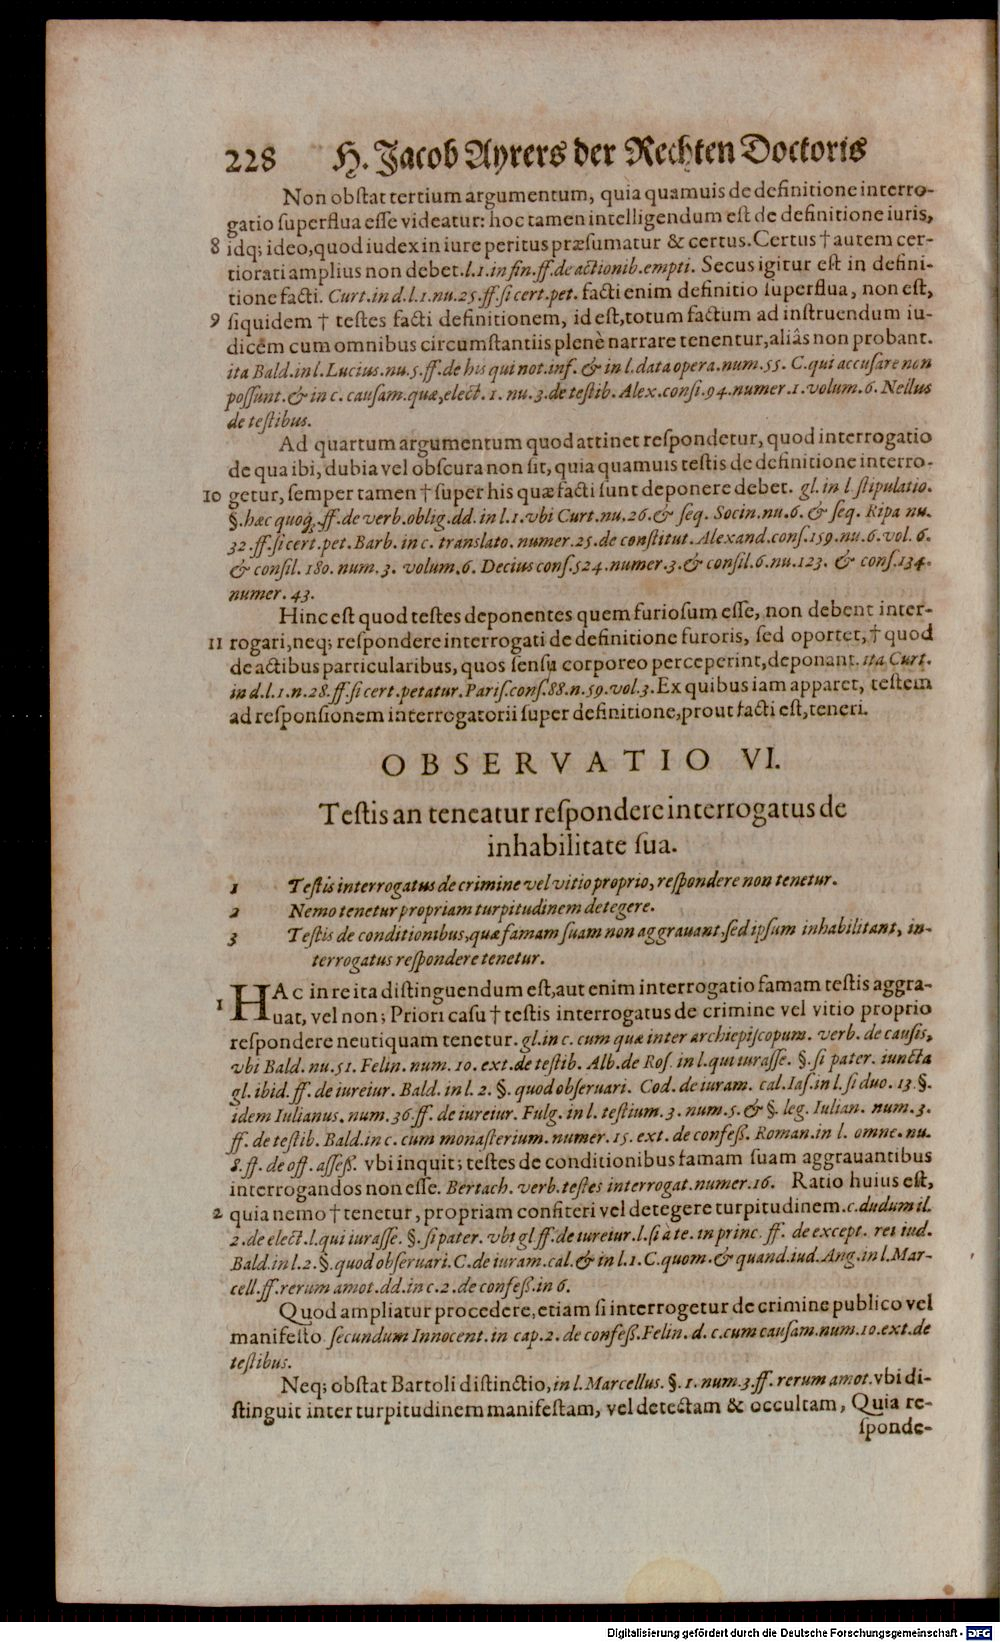 228 H. Jacob Ayrers der Rechten Doctoris
Non obſtat tertium argumentum, quia quamuis de definitione interro-
gatio ſuperflua eſſe videatur: hoc tamen intelligendum eſt de definitione iuris,
8 idq; ideo, quod iudex in iure peritus præſumatur & certus. Certus † autem cer-
tiorati amplius non debet. l. 1. in fin. ff. de actionib. empti. Secus igitur eſt in defini-
tione facti. Curt. in d. l. 1. nu. 25. ff. ſi cert. pet. facti enim definitio ſuperflua, non eſt,
9 ſiquidem † teſtes facti definitionem, id eſt, totum factum ad inſtruendum iu-
dicem cum omnibus circumſtantiis plenè narrare tenentur, aliâs non probant.
ita Bald. in l. Lucius. nu. 5. ff. de his qui not. inf. & in l. data opera. num. 55. C. qui accuſare non
poſſunt. & in c. cauſam. quæ, elect. 1. nu. 3. de teſtib. Alex. conſi. 94. numer. 1. volum. 6. Nellus
de teſtibus.
Ad quartum argumentum quod attinet reſpondetur, quod interrogatio
de qua ibi, dubia vel obſcura non ſit, quia quamuis teſtis de definitione interro-
10 getur, ſemper tamen † ſuper his quæ facti ſunt deponere debet. gl. in l. ſtipulatio.
§. hæc quoq;. ff. de verb. oblig. dd. in l. 1. vbi Curt. nu. 26. & ſeq. Socin. nu. 6. & ſeq. Ripa nu.
32. ff. ſi cert. pet. Barb. in c. translato. numer. 25. de conſtitut. Alexand. conſ. 159. nu. 6. vol. 6.
& conſil. 180. num. 3. volum. 6. Decius conſ. 524. numer. 3. & conſil. 6. nu. 123. & conſ. 134.
numer. 43.
Hinc eſt quod teſtes deponentes quem furioſum eſſe, non debent inter-
11 rogari, neq; reſpondere interrogati de definitione furoris, ſed oportet, † quod
de actibus particularibus, quos ſenſu corporeo perceperint, deponant. ita Curt.
in d. l. 1. n. 28. ff. ſi cert. petatur. Pariſ. conſ. 88. n. 59. vol. 3. Ex quibus iam apparet, teſtem
ad reſponſionem interrogatorii ſuper definitione, prout facti eſt, teneri.
OBSERVATIO VI.
Teſtis an teneatur reſpondere interrogatus de
inhabilitate ſua.
1 Teſtis interrogatus de crimine vel vitio proprio, reſpondere non tenetur.
2 Nemo tenetur propriam turpitudinem detegere.
3 Teſtis de conditionibus, quæ famam ſuam non aggrauant, ſed ipſum inhabilitant, in-
terrogatus reſpondere tenetur.
1 HAc in re ita diſtinguendum eſt, aut enim interrogatio famam teſtis aggra-
uat, vel non; Priori caſu † teſtis interrogatus de crimine vel vitio proprio
reſpondere neutiquam tenetur. gl. in c. cum quæ inter archiepiſcopum. verb. de cauſis,
vbi Bald. nu. 51. Felin. num. 10. ext. de teſtib. Alb. de Roſ. in l. qui iuraſſe. §. ſi pater. iuncta
gl. ibid. ff. de iureiur. Bald. in l. 2. §. quod obſeruari. Cod. de iuram. cal. Iaſ. in l. ſi duo. 13. §.
idem Iulianus. num. 36. ff. de iureiur. Fulg. in l. teſtium. 3. num. 5. & §. leg. Iulian. num. 3.
ff. de teſtib. Bald. in c. cum monaſterium. numer. 15. ext. de confeß. Roman. in l. omne. nu.
8. ff. de off. aſſeß. vbi inquit; teſtes de conditionibus famam ſuam aggrauantibus
interrogandos non eſſe. Bertach. verb. teſtes interrogat. numer. 16. Ratio huius eſt,
2 quia nemo † tenetur, propriam confiteri vel detegere turpitudinem. c. dudum il.
2. de elect. l. qui iuraſſe. §. ſi pater. vbi gl. ff. de iureiur. l. ſi à te. in princ. ff. de except. rei iud.
Bald. in l. 2. §. quod obſeruari. C. de iuram. cal. & in l. 1. C. quom. & quand. iud. Ang. in l. Mar-
cell. ff. rerum amot. dd. in c. 2. de confeß. in 6.
Quod ampliatur procedere, etiam ſi interrogetur de crimine publico vel
manifeſto ſecundum Innocent. in cap. 2. de confeß. Felin. d. c. cum cauſam. num. 10. ext. de
teſtibus.
Neq; obſtat Bartoli diſtinctio, in l. Marcellus. §. 1. num. 3. ff. rerum amot. vbi di-
ſtinguit inter turpitudinem manifeſtam, vel detectam & occultam, Quia re-
ſponde-
Digitalisierung gefördert durch die Deutsche Forschungsgemeinschaft - DFG